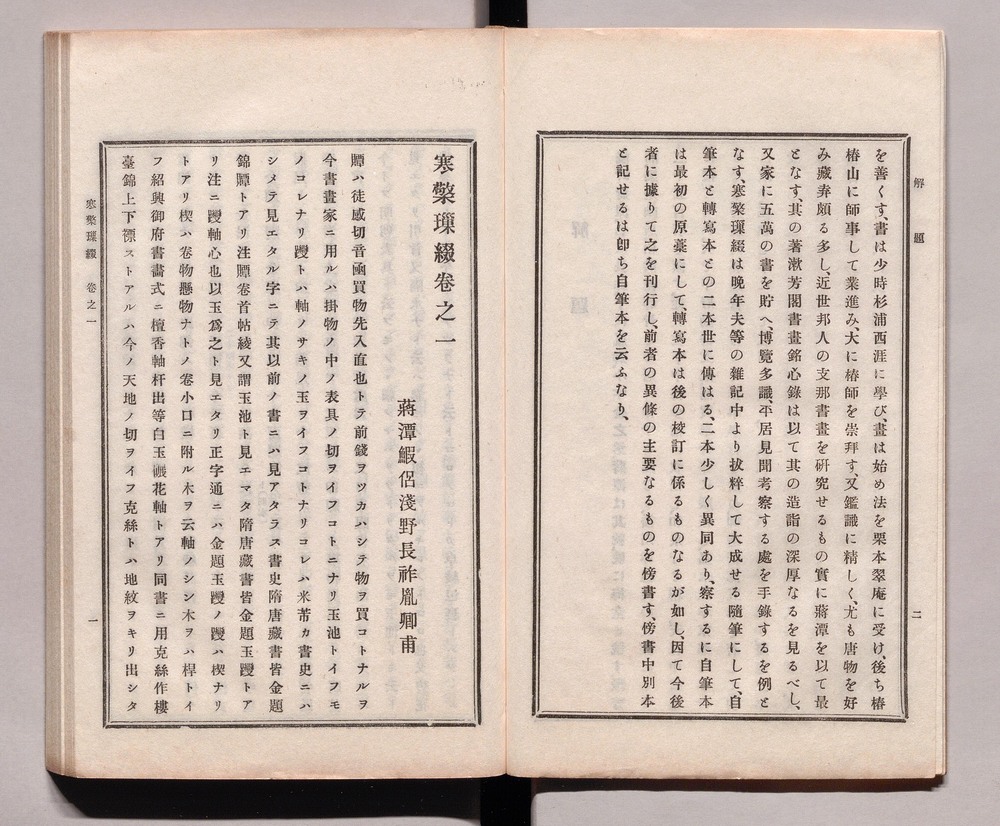 解題
を善くす、書は少時杉浦西涯に學び、畫は始め法を栗本翠庵に受け、後ち椿
椿山に師事して業進み、大に椿師を崇拜す、又鑑識に精しく、尤も唐物を好
み藏弆頗る多し、近世邦人の支那書畫を硏究せるもの實に蔣潭を以て最
となす、其の著漱芳閣書畫銘心錄は以て其の造詣の深厚なるを見るべし、
又家に五萬の書を貯へ、博覽多識、平居見聞考察する處を手錄するを例と
なす、寒檠璅綴は晚年夫等の雜記中より拔粹して大成せる隨筆にして、自
筆本と轉寫本との二本世に傳はる、二本少しく異同あり、察するに自筆本
は最初の原藁にして、轉寫本は後の校訂に係るものなるが如し、因て今後
者に據りて之を刊行し、前者の異條の主要なるものを傍書す、傍書中別本
と記せるは卽ち自筆本を云ふなり、
二
寒檠璅綴卷之一
蔣潭鰕侶淺野長祚胤卿甫
贉ハ徒感切音凾買物先入直也トテ前錢ヲツカハシテ物ヲ買コトナルヲ
今書畫家ニ用ルハ掛物ノ中ノ表具ノ切ヲイフコトニナリ玉池トイフモ
ノコレナリ躞トハ軸ノサキノ玉ヲイフコトナリコレハ米芾カ書史ニハ
シメテ見エタル字ニテ其以前ノ書ニハ見アタラス書史隋唐藏書皆金題
錦贉トアリ注贉卷首帖綾又謂玉池ト見エマタ隋唐藏書皆金題玉躞トア
リ注ニ躞軸心也以玉爲之ト見エタリ正字通ニハ金題玉躞ノ躞ハ楔ナリ
トアリ楔ハ卷物懸物ナトノ卷小口ニ附ル木ヲ云軸ノシン木ヲハ桿トイ
フ紹興御府書畵式ニ檀香軸杆出等白玉碾花軸トアリ同書ニ用克絲作樓
臺錦上下褾ストアルハ今ノ天地ノ切ヲイフ克絲トハ地紋ヲキリ出シタ
寒檠璅綴 卷之一
一